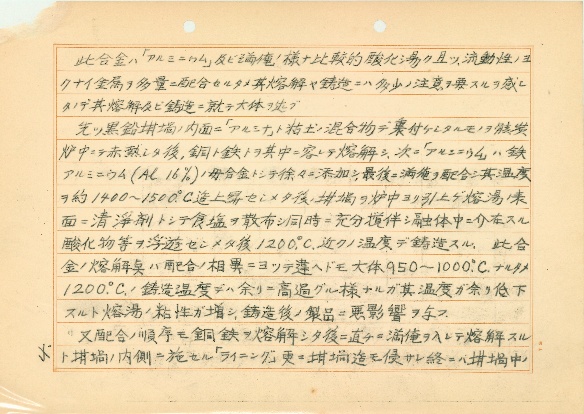 此合金ハ「アルミニウム」及ビ満俺ノ様ナ比較的酸化シ易ク且ツ流動性ノヨ
クナイ金属ヲ多量ニ配合セルタメ其熔解ヤ鋳造ニハ多少ノ注意ヲ要スルヲ感シ
タノデ其熔解及ビ鋳造ニ就テ大体ヲ述ブ
先ヅ黒鉛坩堝ノ内面ニ「アルミナ」ト粘土ノ混合物デ裏付ケシタルモノヲ
炉中ニテ赤熱シタ後、銅ト鉄トヲ其中ニ容レテ熔解シ、次ニ「アルミニウム」ハ鉄
アルミニウム(Al 16%)ノ母合金トシテ徐々ニ添加シ最後ニ満俺ヲ配合シ其温度
ヲ約1400〜1500°C迄上昇セシメタ後坩堝ヲ炉中ヨリ引上ゲ熔湯ノ表
面ニ清浄剤トシテ食塩ヲ散布シ同時ニ充分攪伴シ融体中ニ介在スル
酸化物等ヲ浮遊セシメタ後1200°C.近クノ温度デ鋳造スル. 此合
金ノ熔解点ハ配合ノ相異ニヨツテ違ヘドモ大体950〜1000°C.ナルタメ
1200°C.ノ鋳造温度デハ余リニ高過グル様ナルガ其温度ガ余リ低下
スルト熔湯ノ粘性ガ増シ鋳造後ノ製品ニ悪影響ヲ与フ.
又配合ノ順序モ銅鉄ヲ熔解シタ後ニ直チニ満俺ヲ入レテ熔解スル
ト坩堝ノ内側ニ施セル「ライニング」更ニ坩堝迄モ侵サレ終ニハ坩堝中ノ